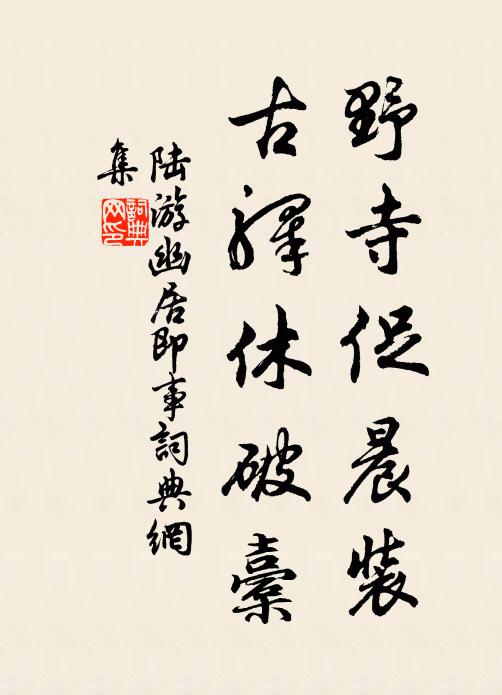 野寺促晨裝
古驛休破橐
陸游幽居即事詞典網
集
詞典
网印